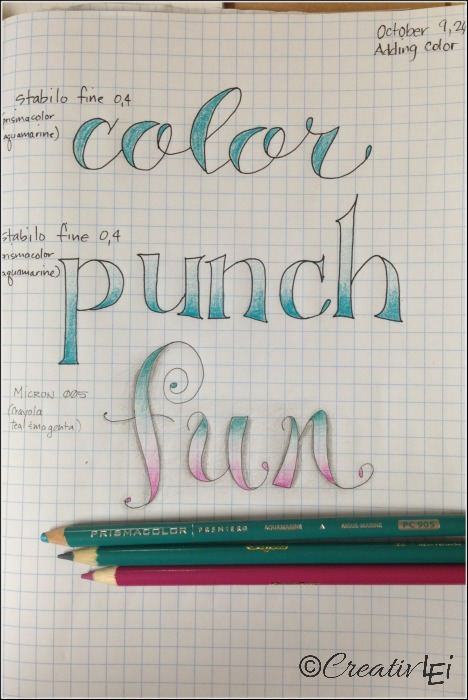 October 9, 20
Adding color
Stabilo fine 0,4
prismacolor
aquamarine)
color
Stabilo fine 0,4
prismacolor
aquamarine)
punch
MICRON 005
(crayola
teal + magenta)
fun
PRISMACOLOR PREMIER AQUAMARINE PC 905
Crayola
©CreativLEi